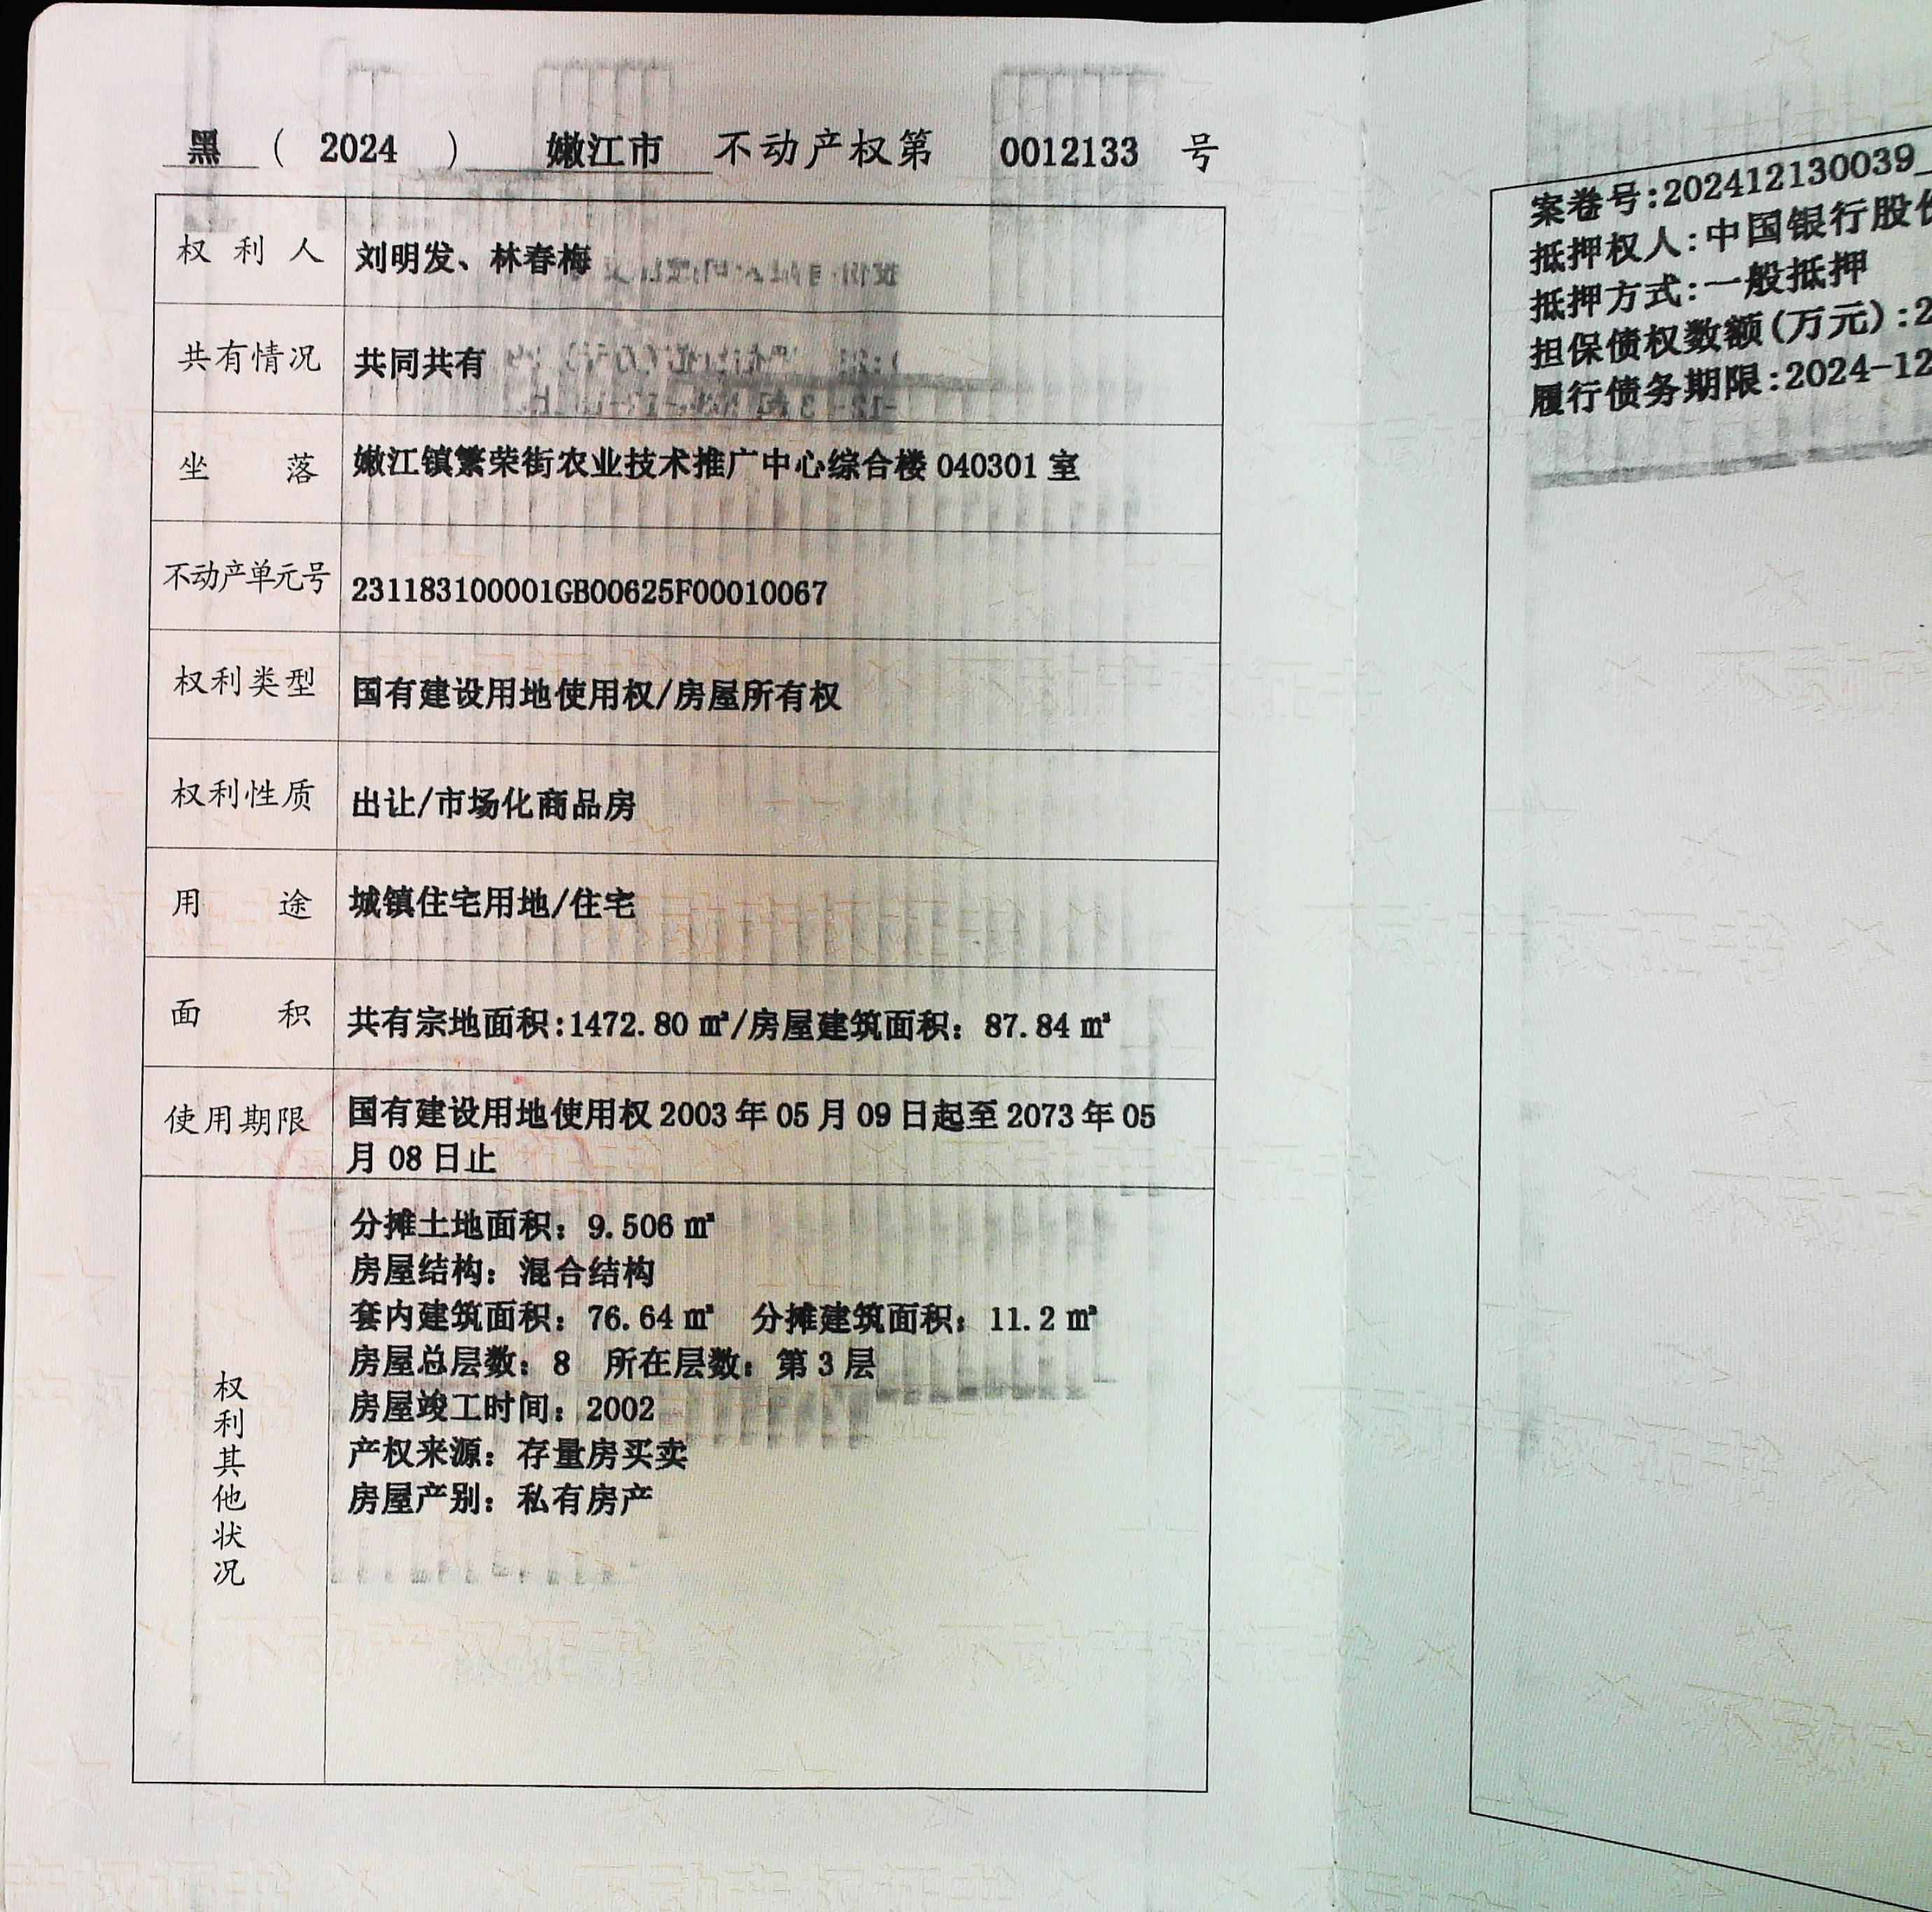 黑 ( 2024 ) 嫩江市 不动产权第 0012133 号
权利人 刘明发、林春梅
共有情况 共同共有
坐落 嫩江镇繁荣街农业技术推广中心综合楼 040301 室
不动产单元号 231183100001GB00625F00010067
权利类型 国有建设用地使用权/房屋所有权
权利性质 出让/市场化商品房
用途 城镇住宅用地/住宅
面积 共有宗地面积:1472.80 ㎡/房屋建筑面积：87.84 ㎡
使用期限 国有建设用地使用权 2003 年 05 月 09 日起至 2073 年 05
月 08 日止
权利其他状况
分摊土地面积：9.506 ㎡
房屋结构：混合结构
套内建筑面积：76.64 ㎡ 分摊建筑面积：11.2 ㎡
房屋总层数：8 所在层数：第 3 层
房屋竣工时间：2002
产权来源：存量房买卖
房屋产别：私有房产
案卷号:202412130039_
抵押权人:中国银行股份
抵押方式:一般抵押
担保债权数额(万元):2
履行债务期限:2024-12